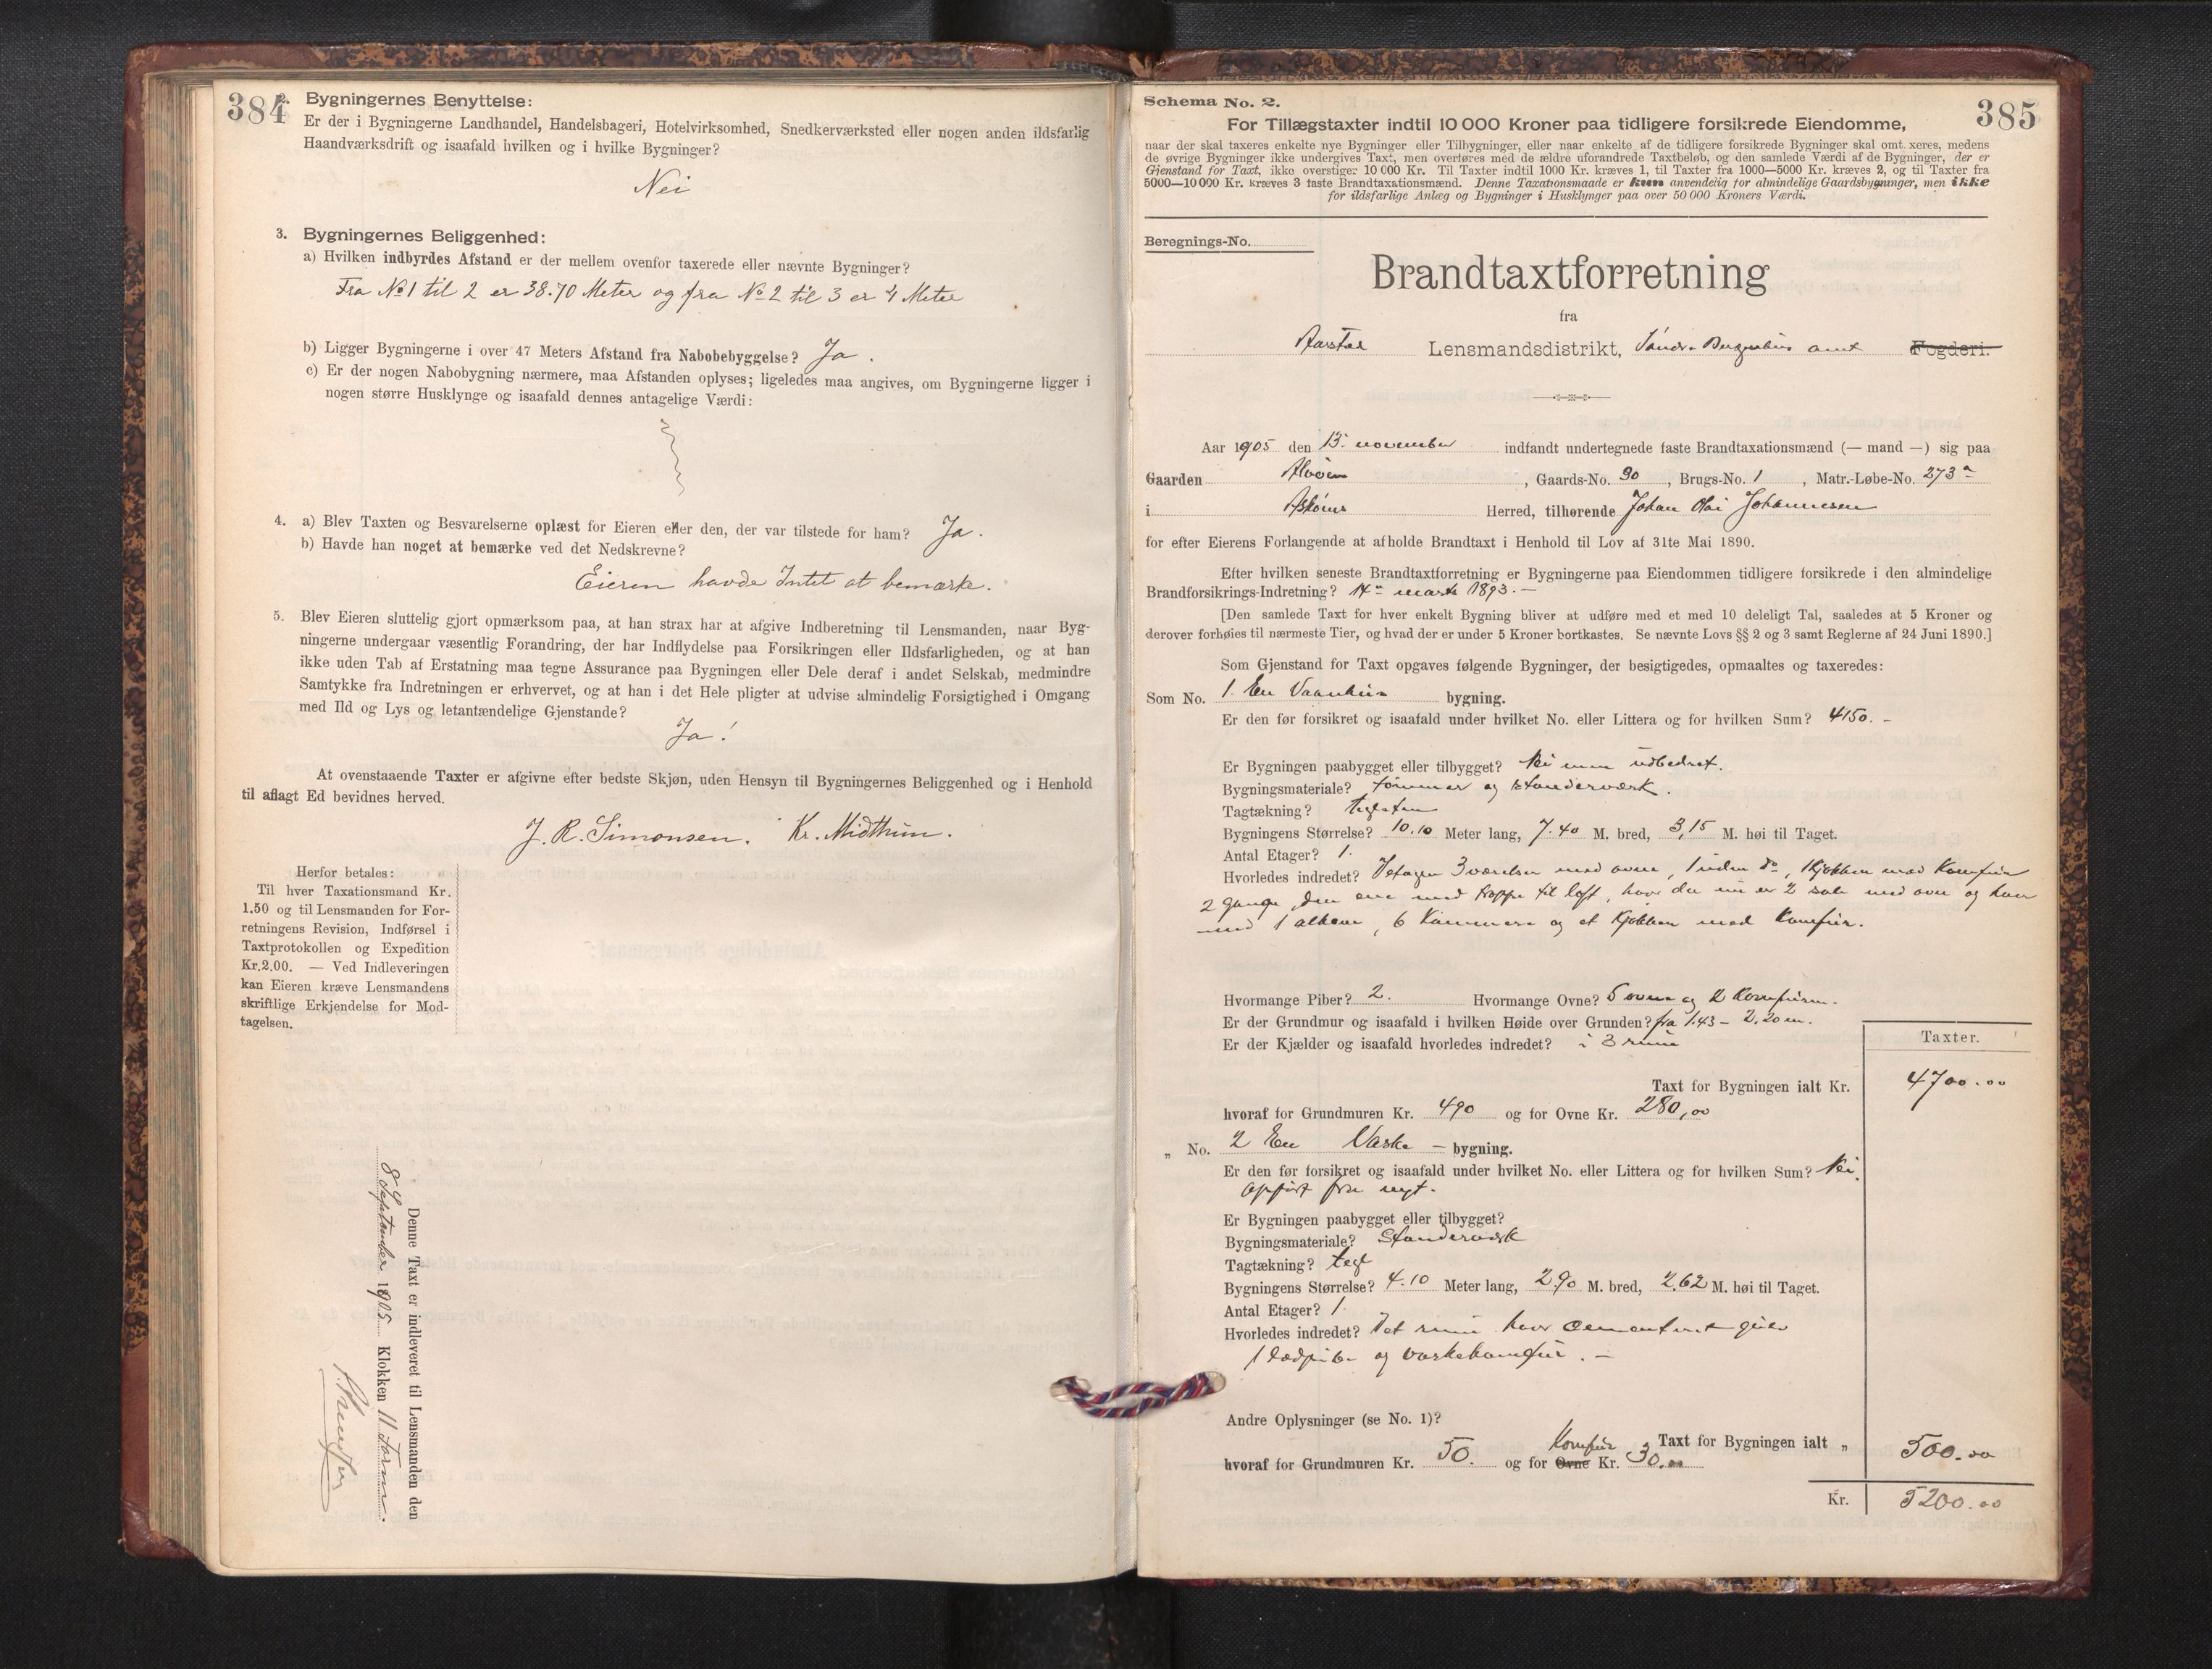 384
2. Bygningernes Benyttelse:
Er der i Bygningerne Landhandel, Handelsbageri, Hotelvirksomhed, Snedkerværksted eller nogen anden ildsfarlig
Haandværksdrift og isaafald hvilken og i hvilke Bygninger?
Nei
3. Bygningernes Beliggenhed:
a) Hvilken indbyrdes Afstand er der mellem ovenfor taxerede eller nævnte Bygninger?
Fra No 1 til 2 er 38.70 Meter og fra No 2 til 3 er 4 Meter
b) Ligger Bygningerne i over 47 Meters Afstand fra Nabobebyggelse? Ja.
c) Er der nogen Nabobygning nærmere, maa Afstanden oplyses; ligeledes maa angives, om Bygningerne ligger i
nogen større Husklynge og isaafald dennes antagelige Værdi:
4. a) Blev Taxten og Besvarelserne oplæst for Eieren eller den, der var tilstede for ham? Ja.
b) Havde han noget at bemærke ved det Nedskrevne?
Eieren havde Intet at bemærke.
5. Blev Eieren sluttelig gjort opmærksom paa, at han strax har at afgive Indberetning til Lensmanden, naar Byg-
ningerne undergaar væsentlig Forandring, der har Indflydelse paa Forsikringen eller Ildsfarligheden, og at han
ikke uden Tab af Erstatning maa tegne Assurance paa Bygningen eller Dele deraf i andet Selskab, medmindre
Samtykke fra Indretningen er erhvervet, og at han i det Hele pligter at udvise almindelig Forsigtighed i Omgang
med Ild og Lys og letantændelige Gjenstande?
Ja!
At ovenstaaende Taxter er afgivne efter bedste Skjøn, uden Hensyn til Bygningernes Beliggenhed og i Henhold
til aflagt Ed bevidnes herved.
J. R. Simonsen. Kr. Midthun.
Herfor betales:
Til hver Taxationsmand Kr.
1.50 og til Lensmanden for For-
retningens Revision, Indførsel i
Taxtprotokollen og Expedition
Kr. 2.00. — Ved Indleveringen
kan Eieren kræve Lensmandens
skriftlige Erkjendelse for Mod-
tagelsen.
Denne Taxt er indleveret til Lensmanden den
8 September 1905 Klokken 11 Form.
385
Schema No. 2.
For Tillægstaxter indtil 10 000 Kroner paa tidligere forsikrede Eiendomme,
naar der skal taxeres enkelte nye Bygninger eller Tilbygninger, eller naar enkelte af de tidligere forsikrede Bygninger skal omt xeres, medens
de øvrige Bygninger ikke undergives Taxt, men overføres med de ældre uforandrede Taxtbeløb, og den samlede Værdi af de Bygninger, der er
Gjenstand for Taxt, ikke overstiger 10 000 Kr. Til Taxter indtil 1000 Kr. kræves 1, til Taxter fra 1000—5000 Kr. kræves 2, og til Taxter fra
5000—10 000 Kr. kræves 3 faste Brandtaxationsmænd. Denne Taxationsmaade er kun anvendelig for almindelige Gaardsbygninger, men ikke
for ildsfarlige Anlæg og Bygninger i Husklynger paa over 50 000 Kroners Værdi.
Beregnings-No.
Brandtaxtforretning
fra
Aarstad Lensmandsdistrikt, Søndre Bergenhus amt Fogderi.
Aar 1905 den 13. november indfandt undertegnede faste Brandtaxationsmænd (— mand —) sig paa
Gaarden Alvøen, Gaards-No. 30, Brugs-No. 1, Matr.-Løbe-No. 273 a
i Askøens Herred, tilhørende Johan Olai Johannesen
for efter Eierens Forlangende at afholde Brandtaxt i Henhold til Lov af 31te Mai 1890.
Efter hvilken seneste Brandtaxtforretning er Bygningerne paa Eiendommen tidligere forsikrede i den almindelige
Brandforsikrings-Indretning? 14 marts 1893. —
[Den samlede Taxt for hver enkelt Bygning bliver at udføre med et med 10 deleligt Tal, saaledes at 5 Kroner og
derover forhøies til nærmeste Tier, og hvad der er under 5 Kroner bortkastes. Se nævnte Lovs §§ 2 og 3 samt Reglerne af 24 Juni 1890.]
Som Gjenstand for Taxt opgaves følgende Bygninger, der besigtigedes, opmaaltes og taxeredes:
Som No. 1. En Vaanhus bygning.
Er den før forsikret og isaafald under hvilket No. eller Littera og for hvilken Sum? 4150. -
Er Bygningen paabygget eller tilbygget? Nei men udbedret.
Bygningsmateriale? tømmer og standerværk.
Tagtækning? teglsten
Bygningens Størrelse? 10.10 Meter lang, 7.40 M. bred, 3,15 M. høi til Taget.
Antal Etager? 1.
Hvorledes indredet? I etagen 3 værelser med ovne, 1 uden do, 1 kjøkken med Komfur
2 gange, den ene med trappe til loft, hvor der nu er 2 sale med ovn og hver
med 1 alkove, 6 Kammere og et kjøkken med Komfur.
Hvormange Piber? 2. Hvormange Ovne? 5 ovne og 2 Komfurer.
Er der Grundmur og isaafald i hvilken Høide over Grunden? fra 1.43 - 2.20 m.
Er der Kjælder og isaafald hvorledes indredet? i 3 rum
Taxter.
Taxt for Bygningen ialt Kr. 4700.00
hvoraf for Grundmuren Kr. 490 og for Ovne Kr. 280,00
„ No. 2 En Vaske - bygning.
Er den før forsikret og isaafald under hvilket No. eller Littera og for hvilken Sum? Nei.
opført fra nyt.
Er Bygningen paabygget eller tilbygget?
Bygningsmateriale? Standerværk
Tagtækning? tegl
Bygningens Størrelse? 4.10 Meter lang, 2.90 M. bred, 2.62 M. høi til Taget.
Antal Etager? 1.
Hvorledes indredet? I et rum hvor cementeret gulv
1 og vaskekomfur. —
Andre Oplysninger (se No. 1)?
Taxt for Bygningen ialt „ 500.00
hvoraf for Grundmuren Kr. 50. og for Ovne Komfur Kr. 30.00
Kr. 5200.00